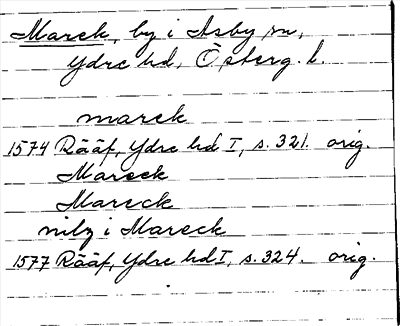 Mareck, by i Asby sn,
Ydre hd, Österg. l.
mareck
1574 Rääf, Ydre hd I, s. 321. orig.
Mareck
Mareck
nilz i Mareck
1577 Rääf, Ydre hd I, s. 324. orig.